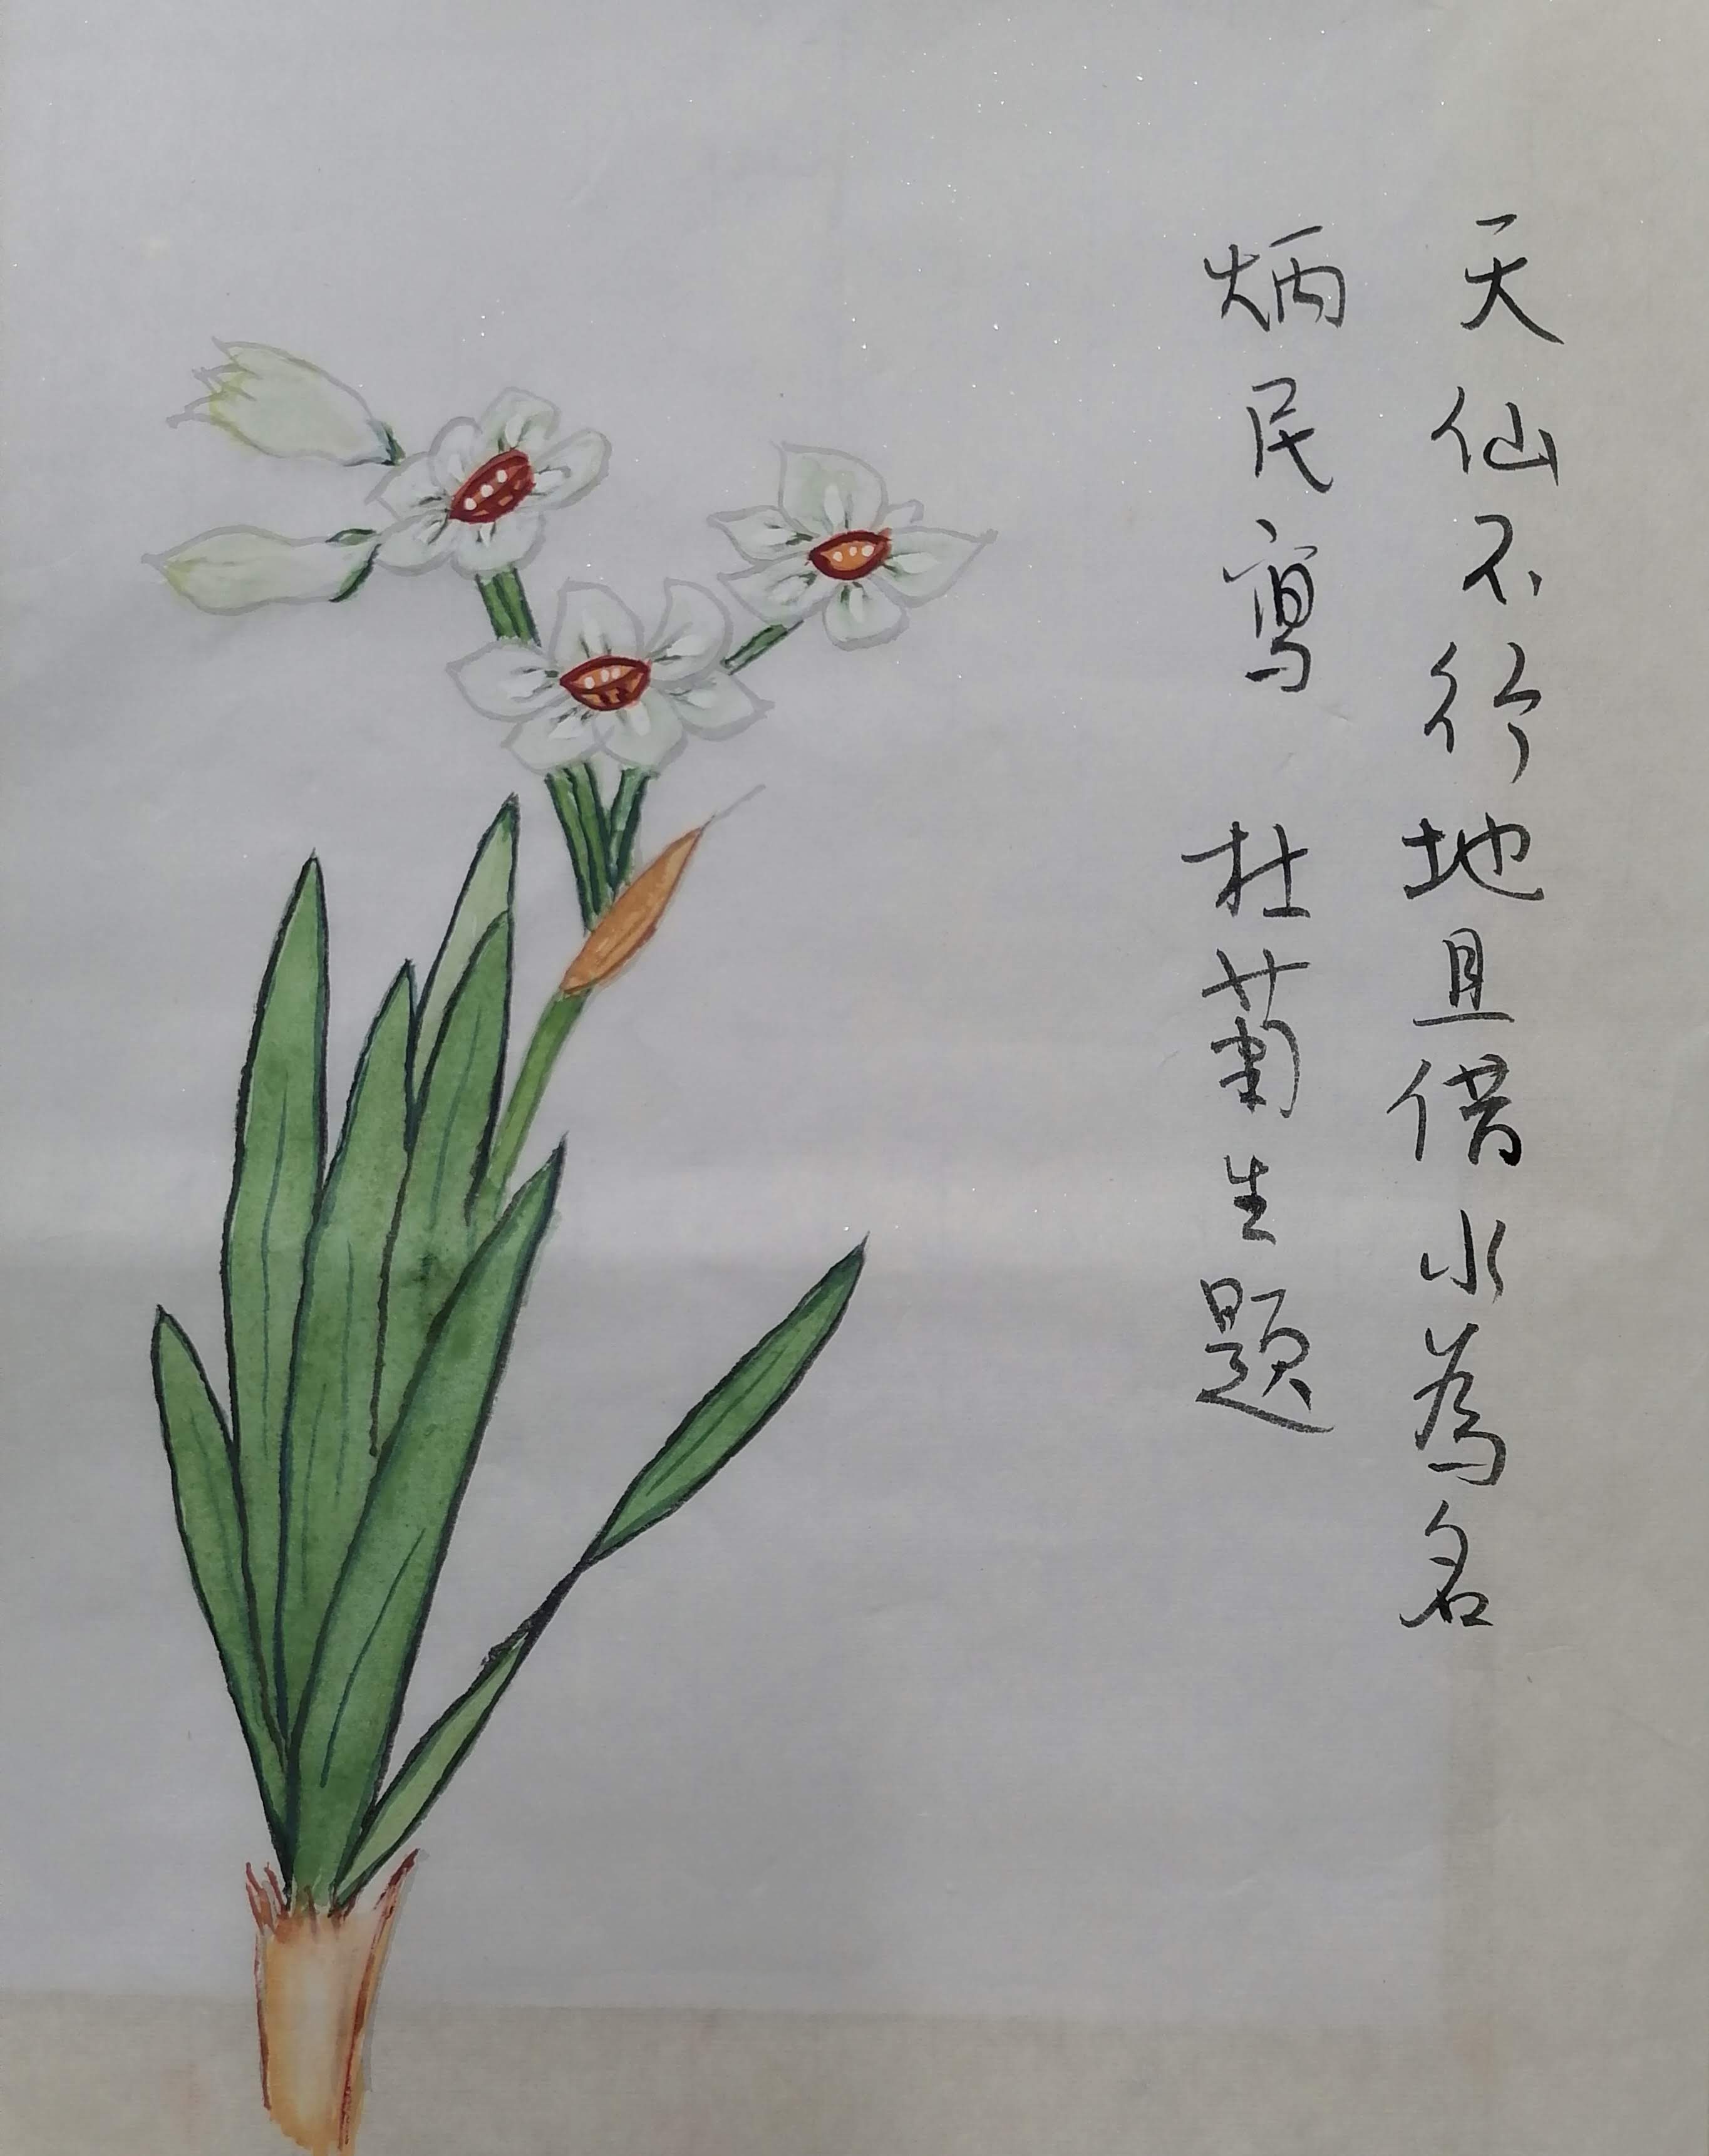 天仙不行地且借水為名
炳民寫 杜菊生题